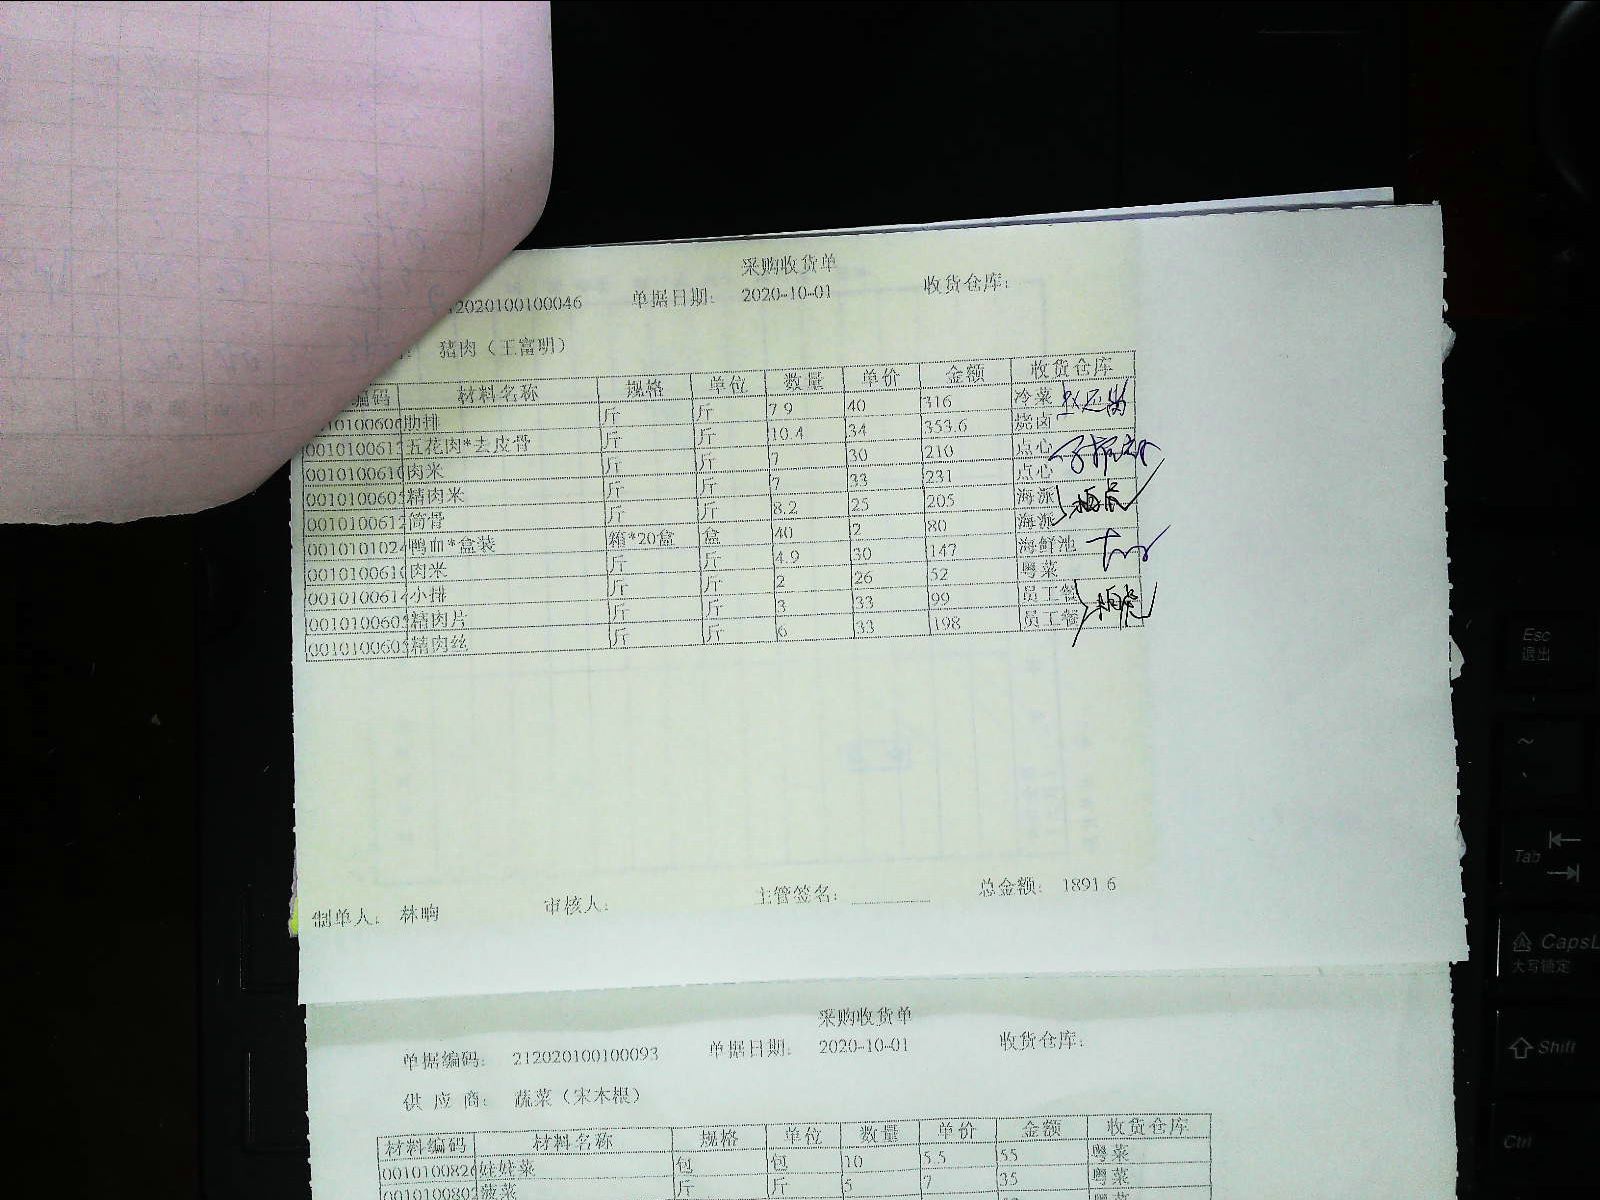 采购收货单
12020100100046 单据日期: 2020-10-01 收货仓库:
猪肉（王富明）
编码 材料名称 规格 单位 数量 单价 金额 收货仓库
肋排 斤 斤 7.9 40 316 冷菜
五花肉*去皮骨 斤 斤 10.4 34 353.6 烧卤
肉米 斤 斤 7 30 210 点心
精肉米 斤 斤 7 33 231 点心
筒骨 斤 斤 8.2 25 205 海派
鸭血*盒装 箱*20盒 盒 40 2 80 海派
肉米 斤 斤 4.9 30 147 海鲜池
小排 斤 斤 2 26 52 粤菜
精肉片 斤 斤 3 33 99 员工餐
精肉丝 斤 斤 6 33 198 员工餐
制单人: 林晌 审核人: 主管签名: 总金额: 1891.6
采购收货单
单据编码: 212020100100093 单据日期: 2020-10-01 收货仓库:
供应商: 蔬菜（宋木根）
材料编码 材料名称 规格 单位 数量 单价 金额 收货仓库
娃娃菜 包 包 10 5.5 55 粤菜
菠菜 斤 斤 5 7 35 粤菜
Esc
退出
Tab
CapsL
大写锁定
Shift
Ctrl